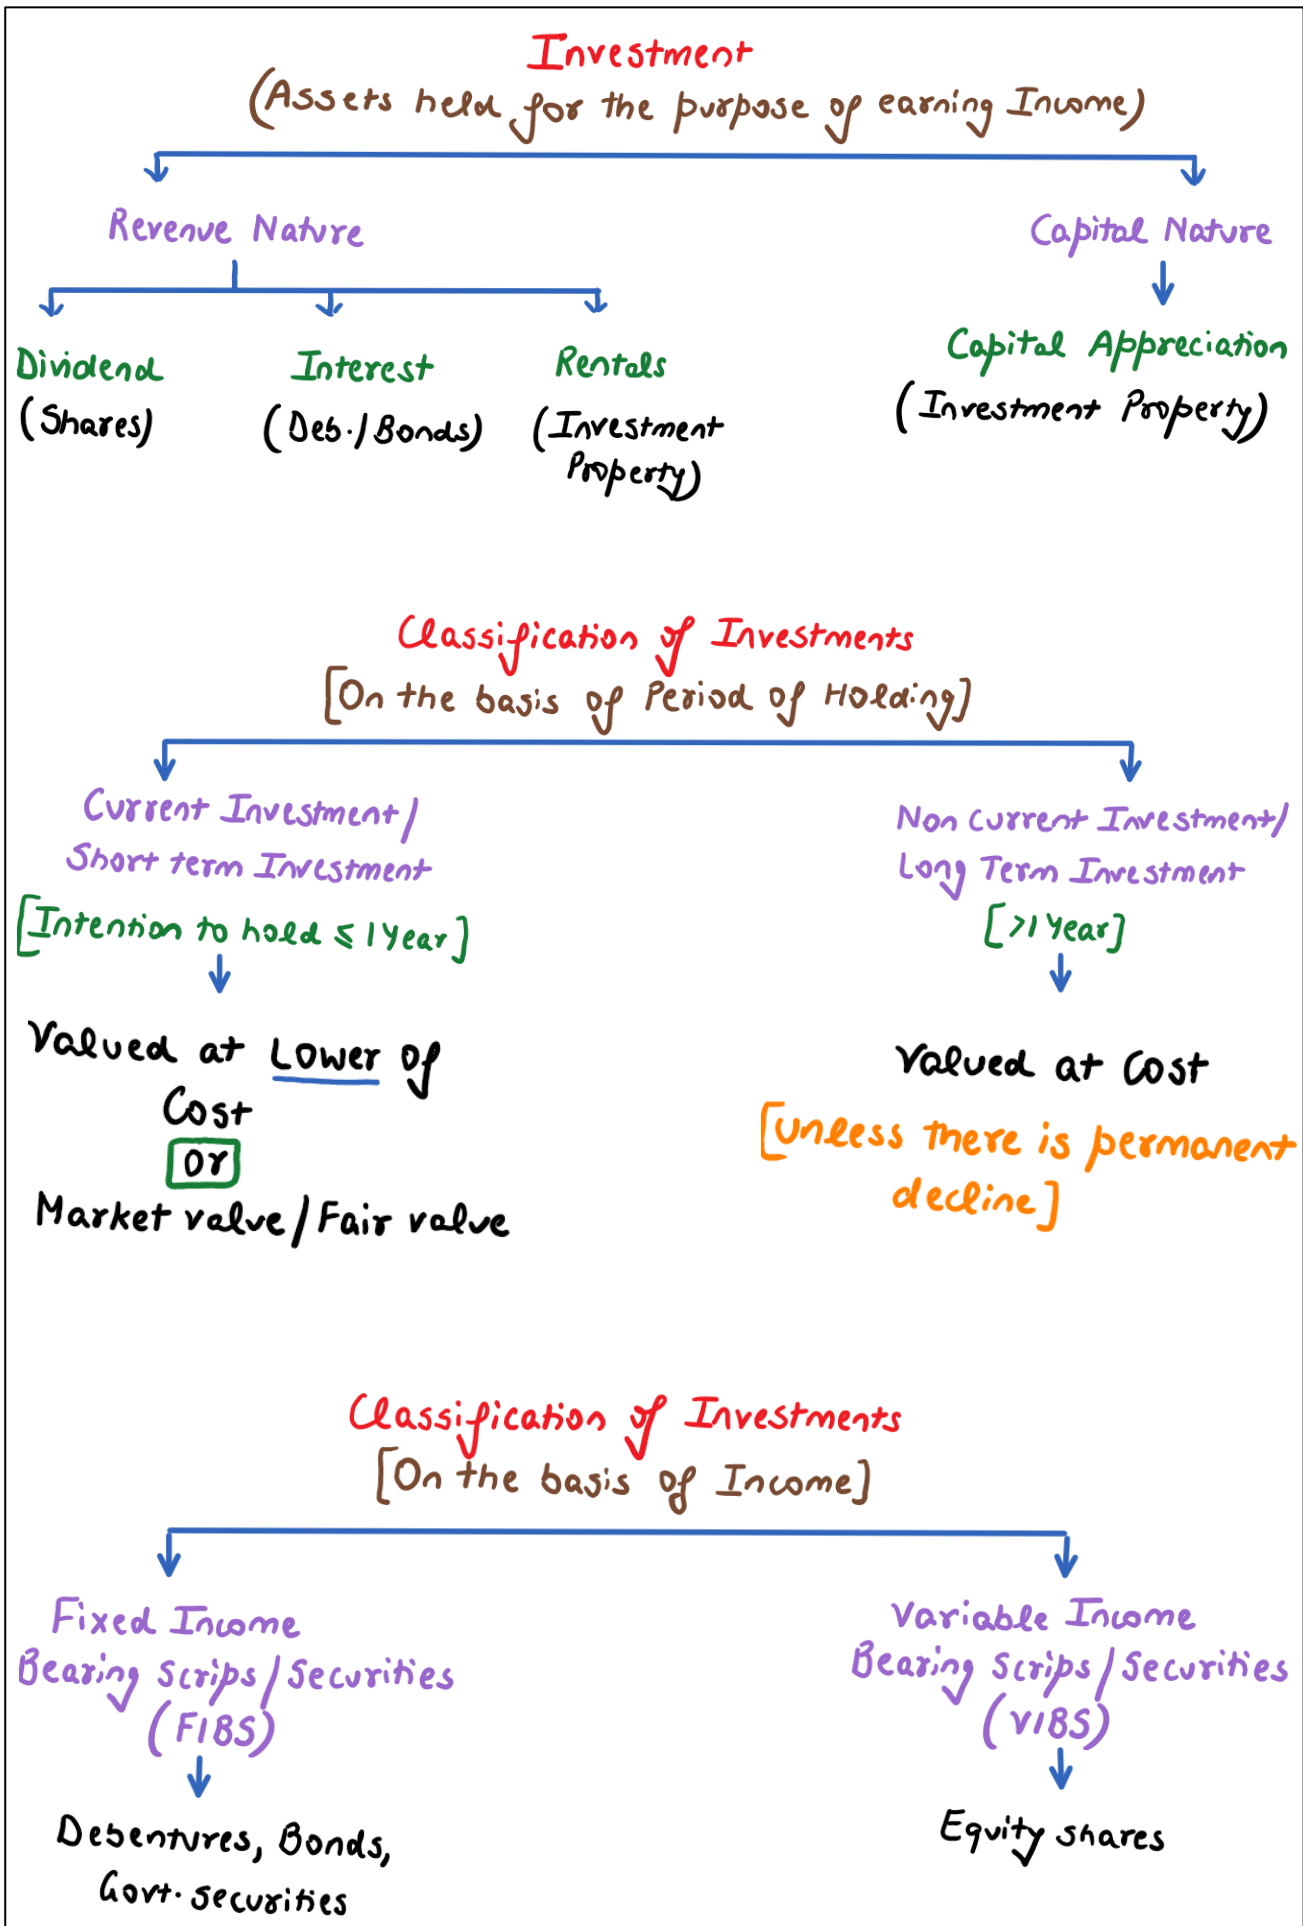 Investment
(Assets held for the purpose of earning Income)
Revenue Nature
Capital Nature
Dividend
(Shares)
Interest
(Deb./Bonds)
Rentals
(Investment
Property)
Capital Appreciation
(Investment Property)
Classification of Investments
[On the basis of Period of Holding]
Current Investment/
Short term Investment
[Intention to hold ≤ 1 Year]
Valued at Lower of
Cost
or
Market value/Fair value
Non Current Investment/
Long Term Investment
[>1 Year]
Valued at Cost
[unless there is permanent
decline]
Classification of Investments
[On the basis of Income]
Fixed Income
Bearing Scrips/Securities
(FIBS)
Debentures, Bonds,
Govt. securities
Variable Income
Bearing Scrips/Securities
(VIBS)
Equity shares